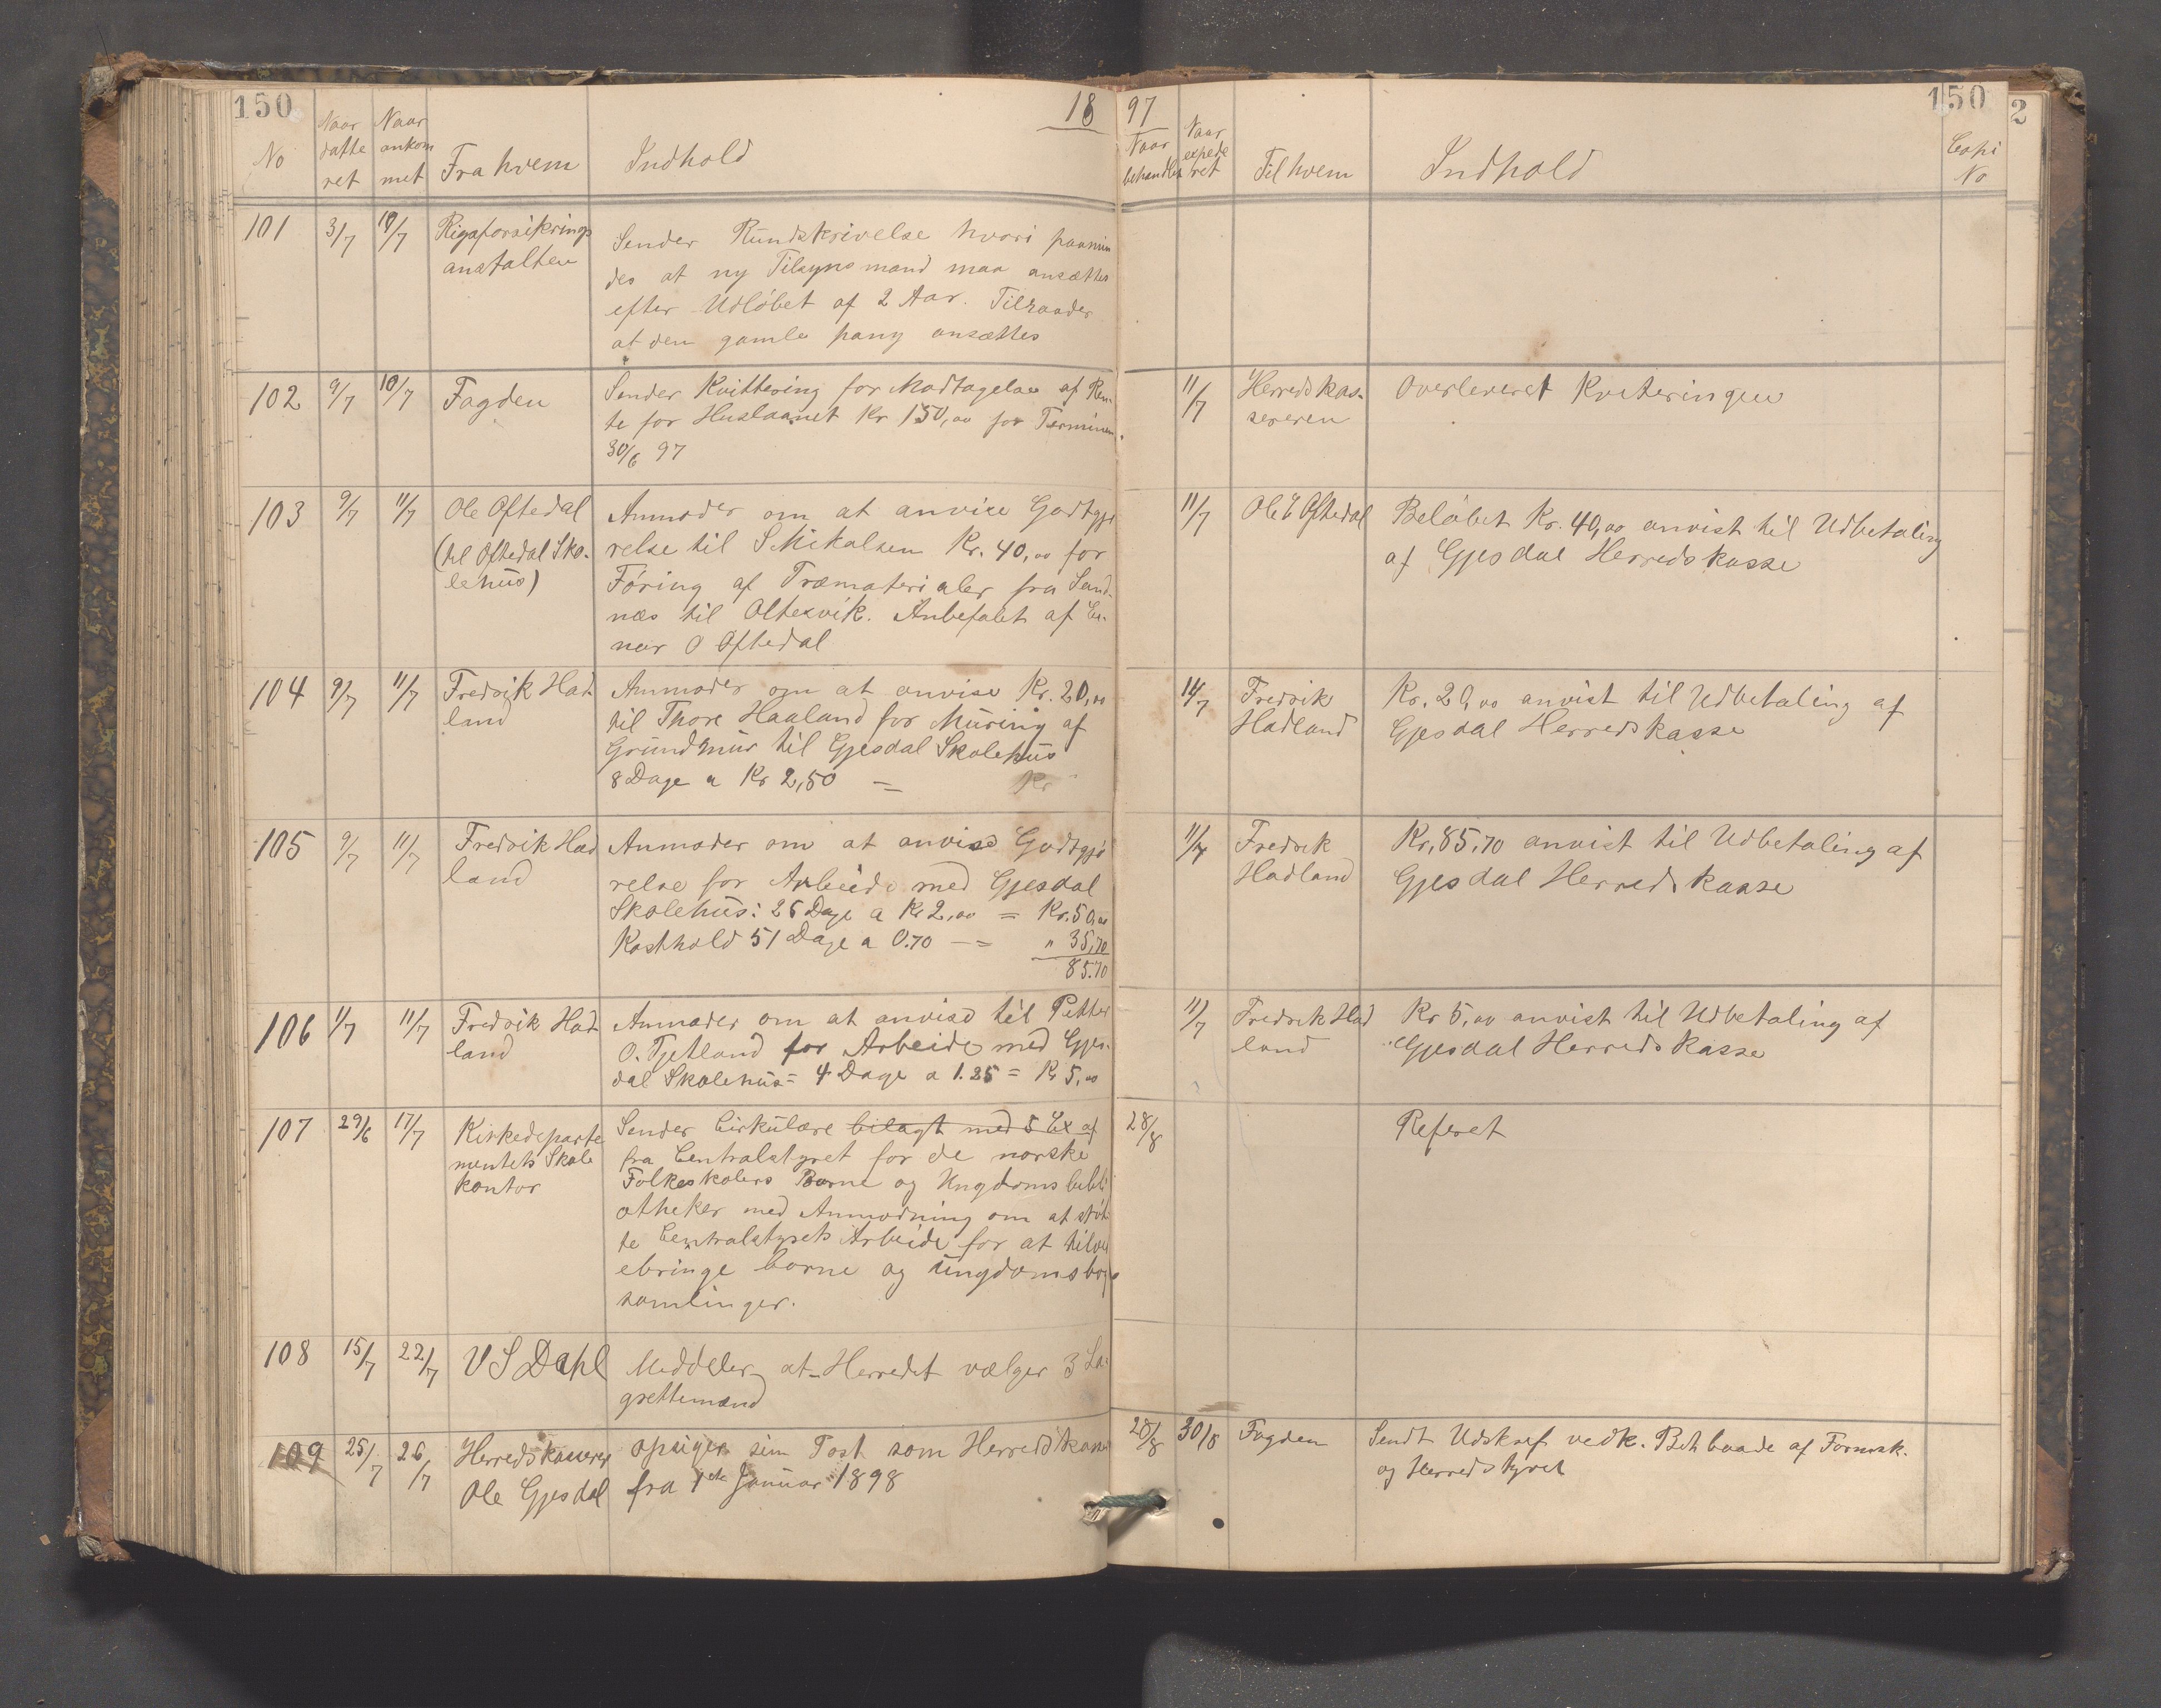 150
18
97
150
2
No
Naar datte ret
Naar ankom met
Fra hvem
Indhold
Naar behandlet
Naar expede ret
Til hvem
Indhold
Copi No
101 3/7 10/7 Rigsforsikrings
anstalten
Sender Rundskrivelse hvori paamin
des at ny Tilsynsmand maa ansættes
efter Udløbet af 2 Aar. Tilraader
at den gamle paany ansættes
102 9/7 10/7 Fogden
Sender Kvittering for Modtagelse af Ren-
te for Huslaanet Kr 150,00 for Terminen
30/6 97
11/7 Herredskas-
sereren
Overleveret Kviteringen
103 9/7 11/7 Ole Oftedal
(til Oftedal Sko-
lehus)
Anmoder om at anvise Godtgjø
relse til S Mikalsen Kr. 40,00 for
Føring af Træmaterialer fra Sand-
næs til Oltesvik. Anbefalet af Ei-
nar O Oftedal
11/7 Ole E Oftedal
Beløbet Kr. 40,00 anvist til Udbetaling
af Gjesdal Herredskasse
104 9/7 11/7 Fredrik Had
land
Anmoder om at anvise Kr. 20,00
til Thore Haaland for Muring af
Grundmur til Gjesdal Skolehus
8 Dage a Kr 2,50 = Kr
14/7 Fredrik
Hadland
Kr. 20,00 anvist til Udbetaling af
Gjesdal Herredskasse
105 9/7 11/7 Fredrik Had
land
Anmoder om at anvise Godtgjø
relse for Arbeide med Gjesdal
Skolehus: 25 Dage a Kr 2,00 = Kr. 50,00
Kosthold 51 Dage a 0.70 — = " 35,70
85.70
11/7 Fredrik
Hadland
Kr. 85,70 anvist til Udbetaling af
Gjesdal Herredskasse
106 1/7 11/7 Fredrik Had
land
Anmoder om at anvise til Petter
O. Tjetland for Arbeide med Gjes-
dal Skolehus = 4 Dage a 1.25 = Kr 5,00
11/7 Fredrik Had
land
Kr 5,00 anvist til Udbetaling af
Gjesdal Herredskasse
107 29/6 17/7 Kirkedeparte
mentets Skole
kontor
Sender Cirkulære bilagt med 5 Ex af
fra Centralstyret for de norske
Folkeskolers Børne og Ungdomsbibli
otheker med Anmodning om at støt
te Centralstyrets Arbeide for at tilvei
ebringe børne og ungdomsbog
samlinger.
28/8
Referet
108 15/7 22/7 V S Dahl
Meddeler at Herredet vælger 3 La
grettemænd
109 25/7 26/7 Herredskasserer
Ole Gjesdal
Opsiger sin Post som Herredskass
fra 1ste Januar 1898
28/8 30/8 Fogden
Sendt Udskrif vedk. Beh baade af Formsk.
og Herredstyret